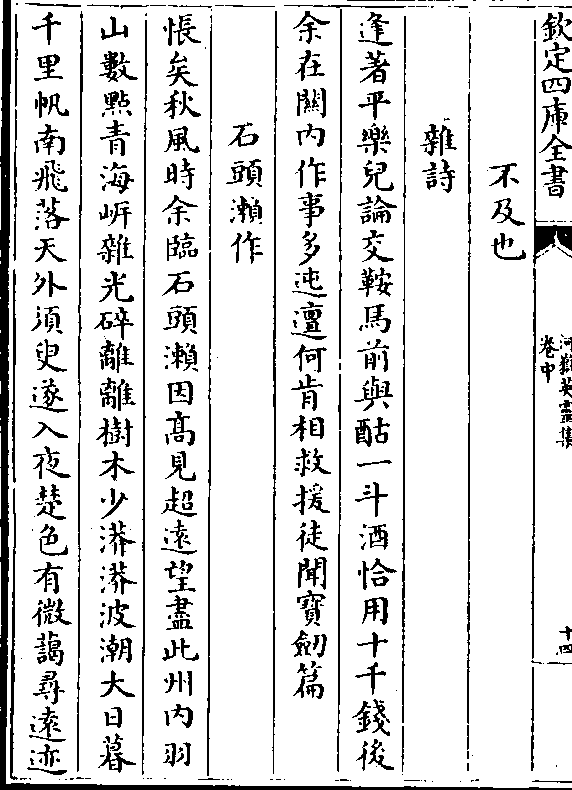 欽定四庫全書
河嶽英靈集
卷中
十四
不及也
雜詩
逢著平樂兒論交鞍馬前與酤一斗酒恰用十千錢後
余在關内作事多迍邅何肯相救援徒聞寶劒篇
石頭瀬作
悵矣秋風時余臨石頭瀬因髙見超遠望盡此州内羽
山數㸃青海岍雜光碎離離樹木少漭漭波潮大日暮
千里帆南飛落天外須臾遂入夜楚色有微藹尋遠迹